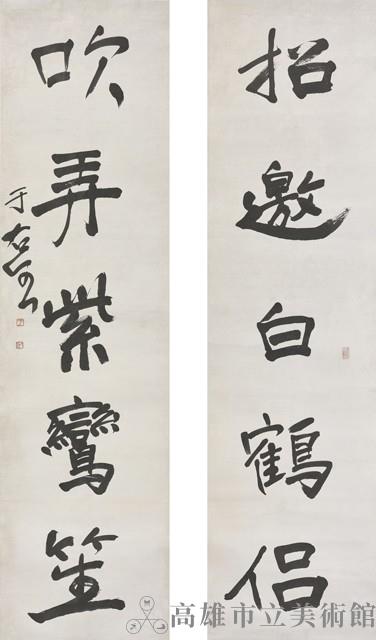 招邀白鶴侶
吹弄紫鸞笙
于右任
高雄市立美術館